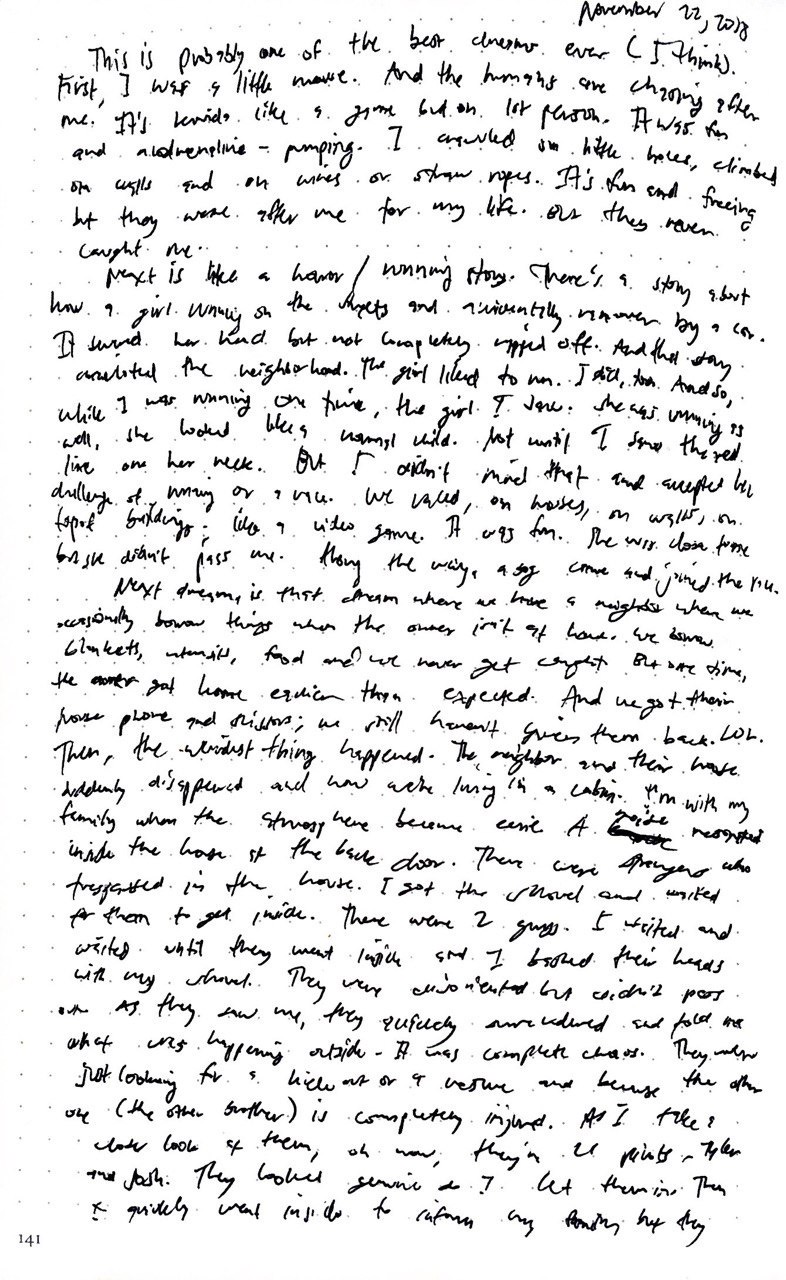 November 22, 2018
This is probably one of the best dreams ever (I think).
First, I was a little mouse. And the humans are chasing after
me. It's kinda like a game but on 1st person. It was fun
and adrenaline-pumping. I crawled in little holes, climbed
on walls and on wires or straw ropes. It's fun and freeing
but they were after me for my life. But they never
caught me.
Next is like a horror/running story. There's a story about
how a girl running on the streets and accidentally ranover by a car.
It her head but not completely ripped off. And that story
circulated the neighborhood. The girl liked to run. I did, too. And so,
while I was running one time, the girl I saw. She was running as
well, she looked like a normal child. Not until I saw the red
line one her neck. But I didn't mind that and accepted her
challenge of running or a race. We raced, on houses, on walls, on
top of buildings, like a video game. It was fun. She was close to me
but she didn't pass me. Along the way, a guy came and joined the run.
Next dream is that dream where we have a neighbor where we
occasionally borrow things when the owner isn't at home. We borrow
blankets, utensils, food and we never get caught. But one time,
the owner got home earlier than expected. And we got their
house phone and scissors; we still haven't given them back. LOL.
Then, the weirdest thing happened. The neighbor and their house
suddenly disappeared and now we're living in a cabin. I'm with my
family when the atmosphere became eerie. A noise
inside the house at the back door. There were strangers who
trespassed in the house. I got the shovel and waited
for them to get inside. There were 2 guys. I waited and
waited until they went inside and I bashed their heads
with my shovel. They were disoriented but didn't pass
out. As they saw me, they quickly surrendered and told me
what was happening outside - It was complete chaos. They were
just looking for a hideout or a rescue and because the other
one (the other brother) is completely injured. As I take a
closer look at them, oh wow, they're 21 pilots - Tyler
and Josh. They looked genuine so I let them in. Then
I quickly went inside to inform my family but they
141